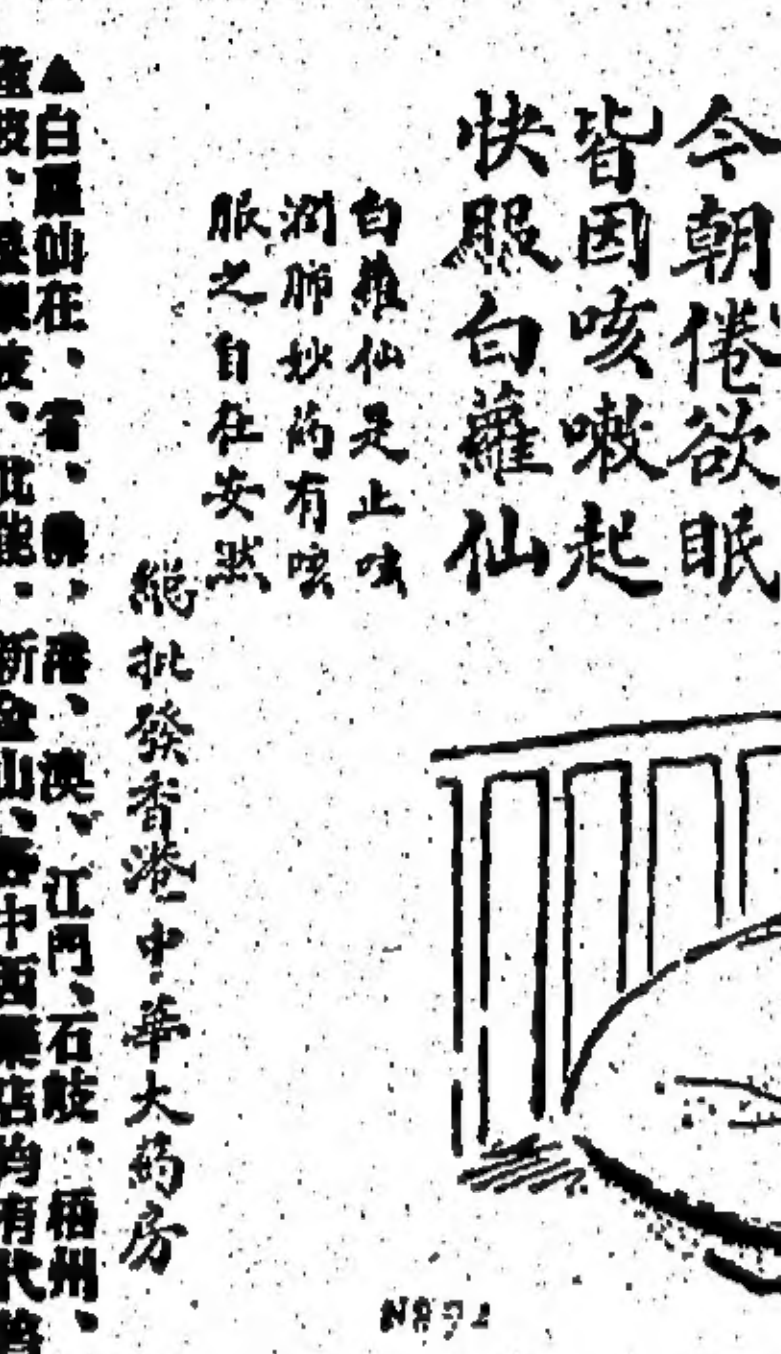 今朝倦欲眠
皆因咳嗽起
快服白蘿仙
白蘿仙是止咳
潤肺妙药有咳
服之自在安然
總批發香港中華大药房
▲白蘿仙在、省、佛、港、澳、江門、石岐、梧州、
新金山、各中西藥店均有代